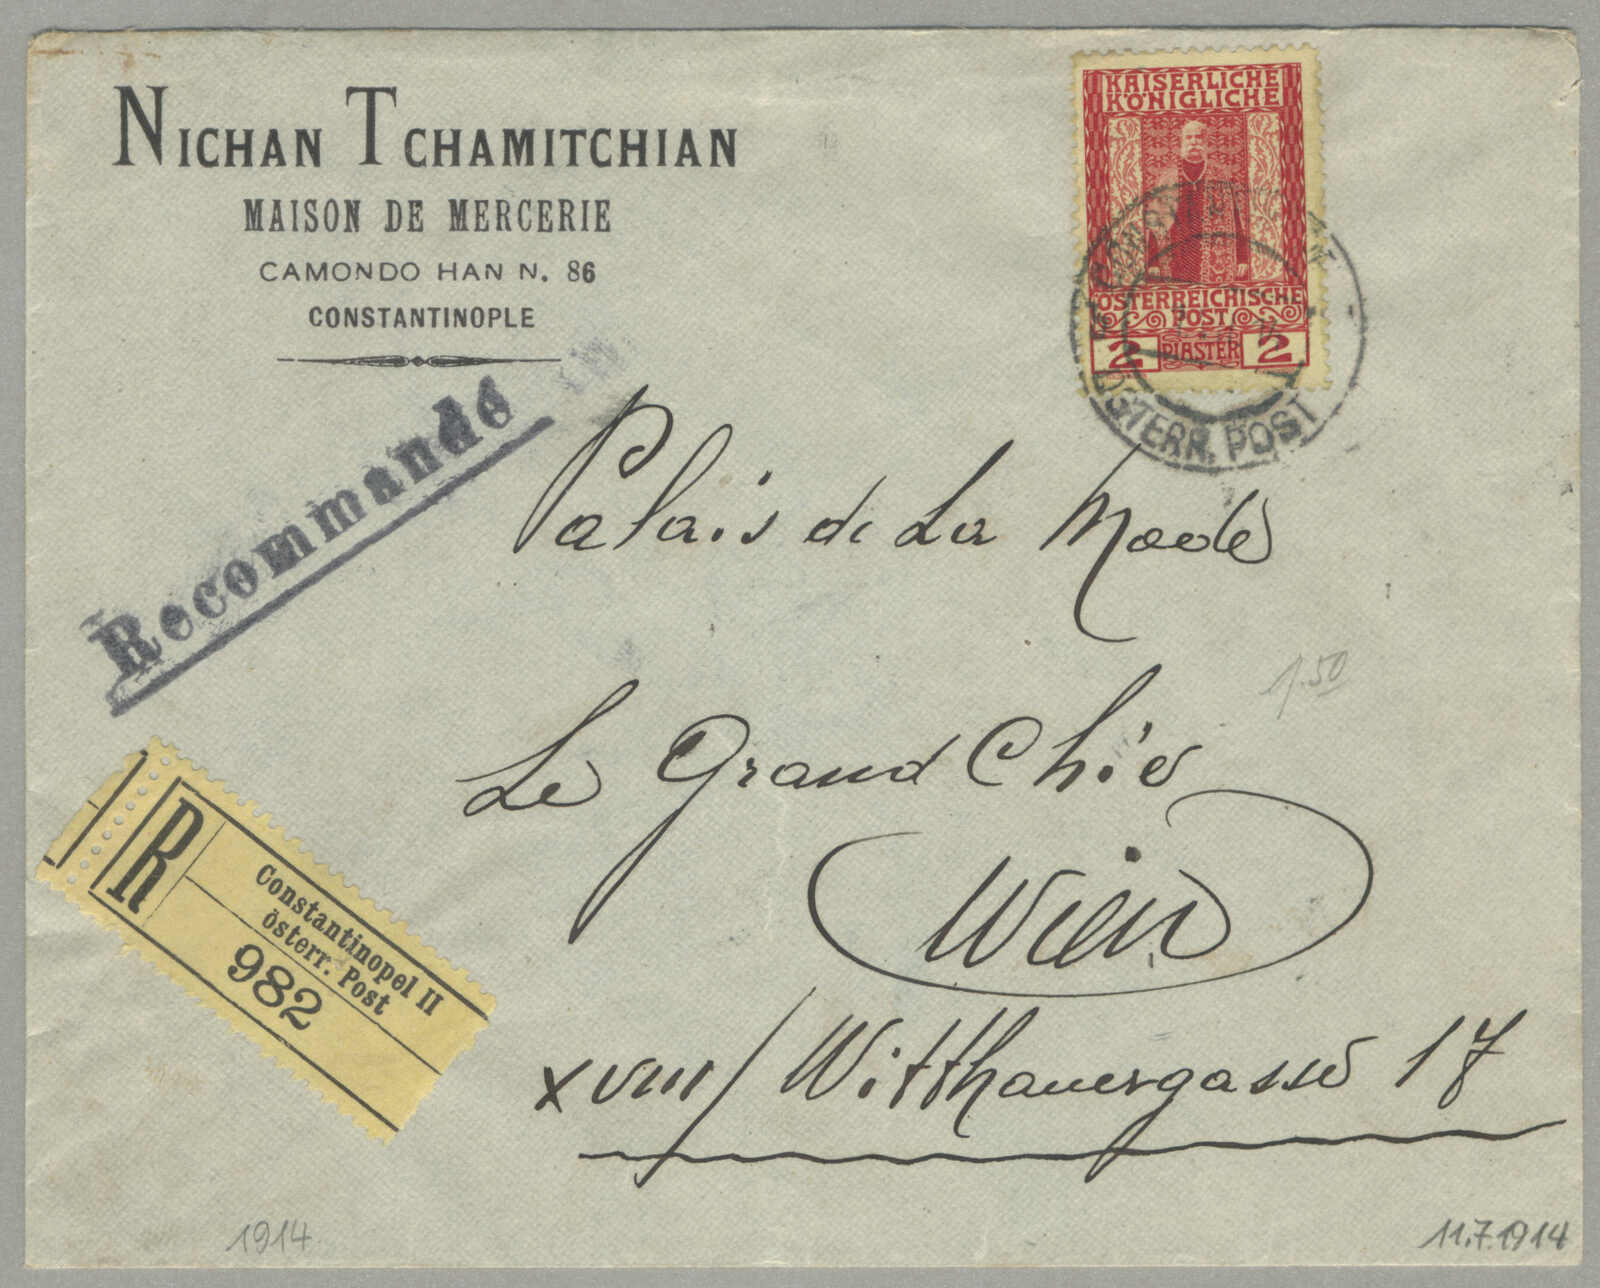 NICHAN TCHAMITCHIAN
MAISON DE MERCERIE
CAMONDO HAN N. 86
CONSTANTINOPLE
KAISERLICHE
KÖNIGLICHE
ÖSTERREICHISCHE
POST
2 PIASTER 2
ÖSTERR. POST
Recommandé
Palais de La Mode
1.50
Le Grand Chic
Wien
XVIII/Witthauergasse 17
R
Constantinopel II
österr. Post
982
1914
11.7.1914